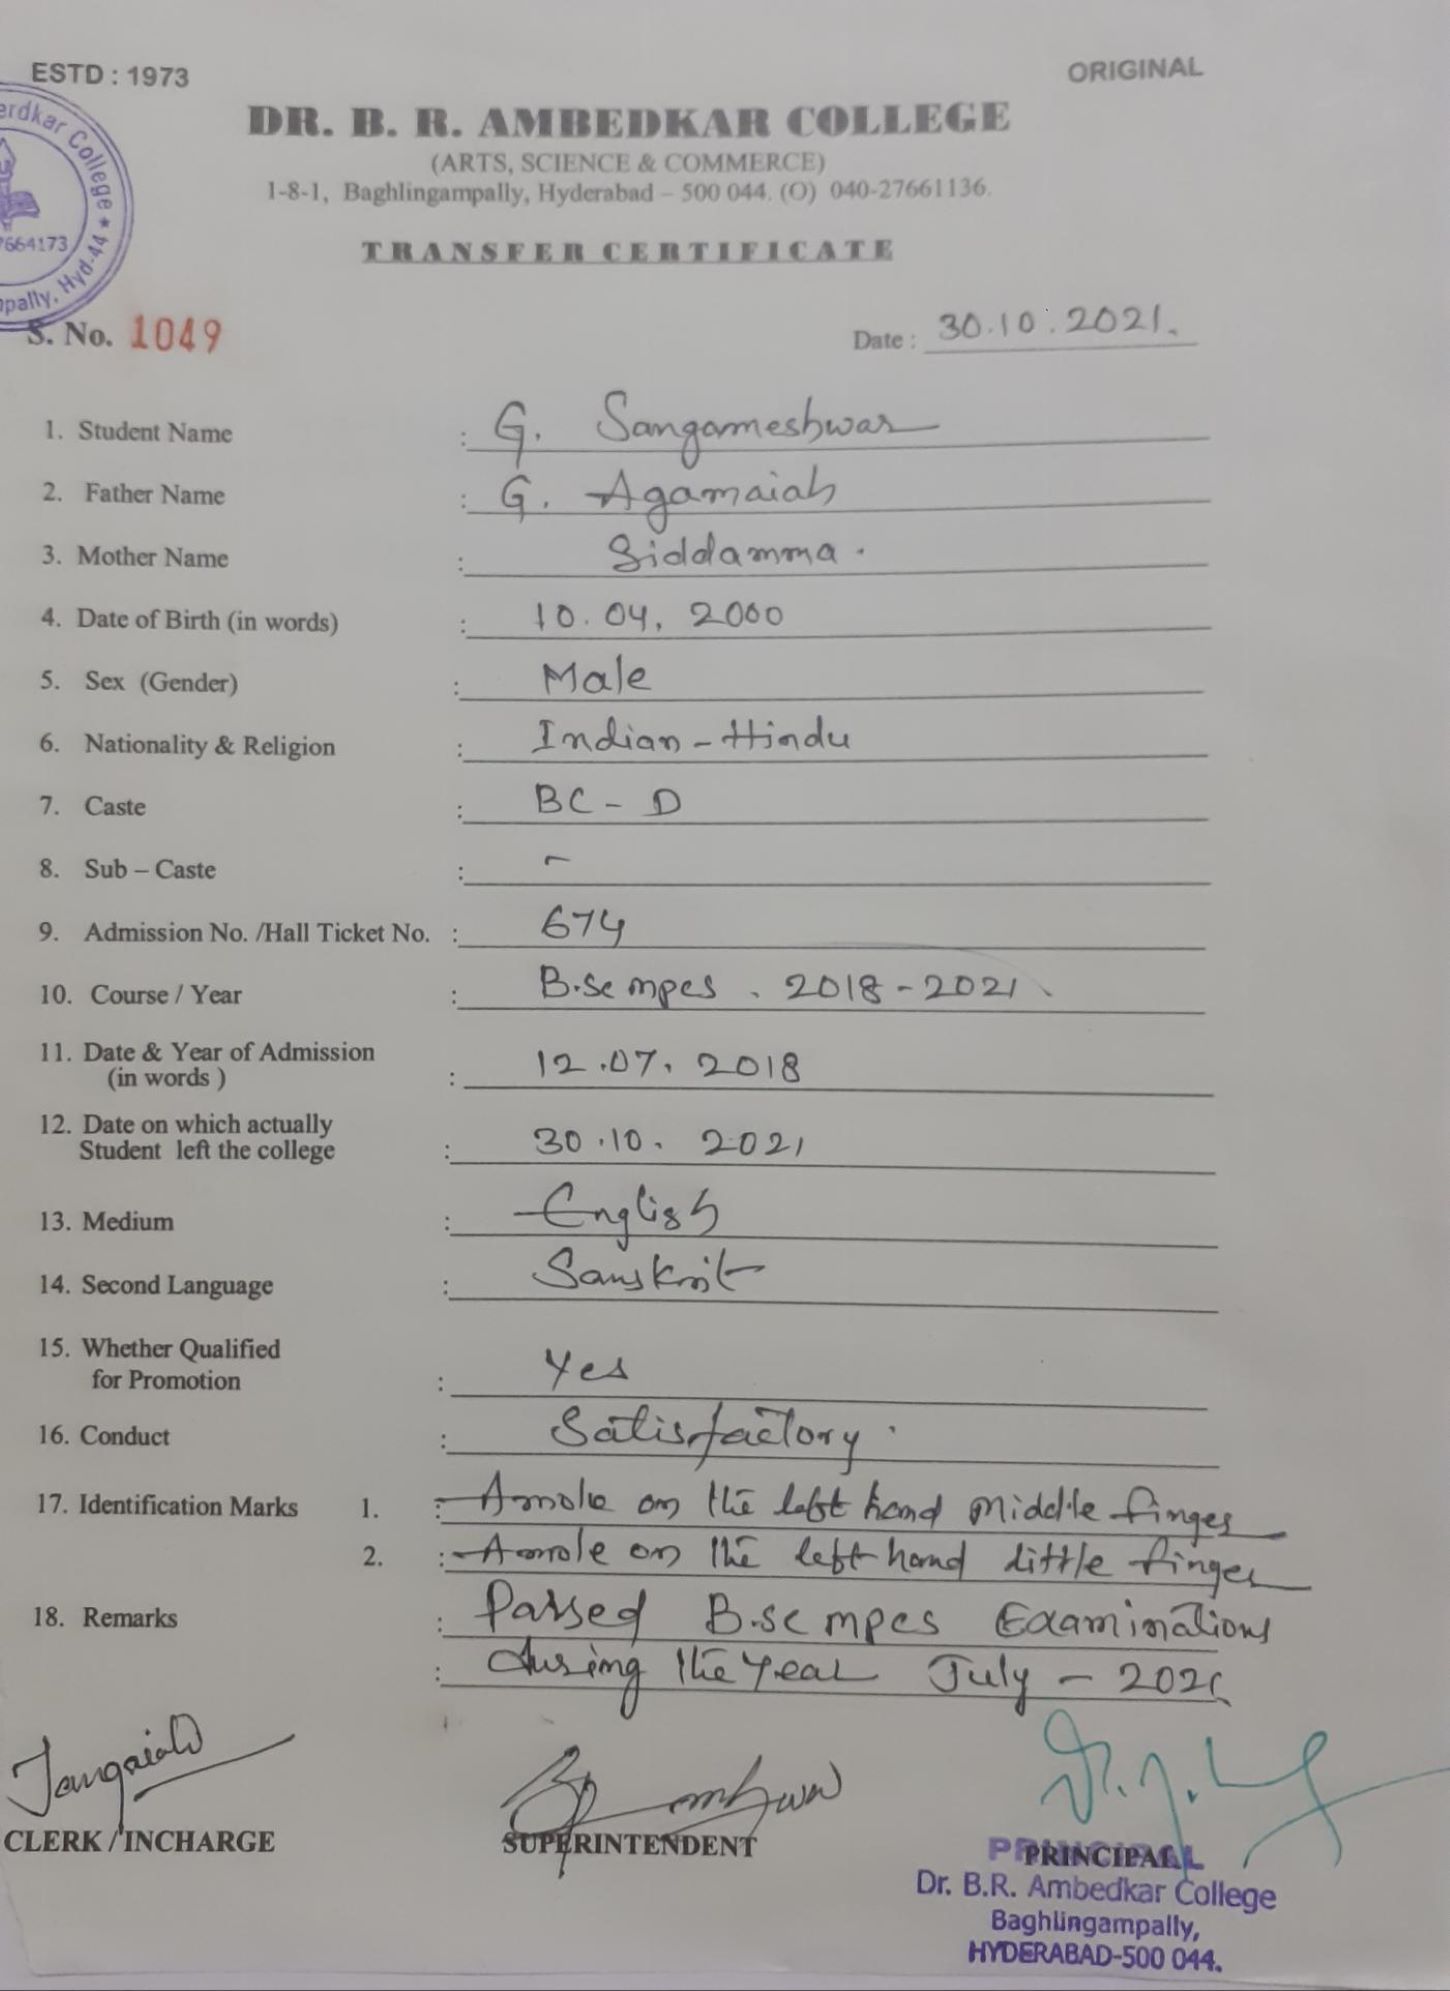 ESTD : 1973
ORIGINAL
erdkar College ★
7664173
mpally, Hyd-44
DR. B. R. AMBEDKAR COLLEGE
(ARTS, SCIENCE & COMMERCE)
1-8-1, Baghlingampally, Hyderabad – 500 044. (O) 040-27661136.
TRANSFER CERTIFICATE
S. No. 1049
Date : 30.10.2021.
1. Student Name : G. Sangameshwar
2. Father Name : G. Agamaiah
3. Mother Name : Siddamma.
4. Date of Birth (in words) : 10.04.2000
5. Sex (Gender) : Male
6. Nationality & Religion : Indian - Hindu
7. Caste : BC - D
8. Sub – Caste : -
9. Admission No. /Hall Ticket No. : 674
10. Course / Year : B.Sc mpcs . 2018 - 2021.
11. Date & Year of Admission
(in words ) : 12.07.2018
12. Date on which actually
Student left the college : 30.10.2021
13. Medium : English
14. Second Language : Sanskrit
15. Whether Qualified
for Promotion : Yes
16. Conduct : Satisfactory.
17. Identification Marks 1. : A mole on the left hand Middle finger
2. : A mole on the left hand little finger
18. Remarks : Passed B.sc mpcs Examinations
: during the year July - 2021
CLERK / INCHARGE
SUPERINTENDENT
PRINCIPAL
PRINCIPAL
Dr. B.R. Ambedkar College
Baghlingampally,
HYDERABAD-500 044.